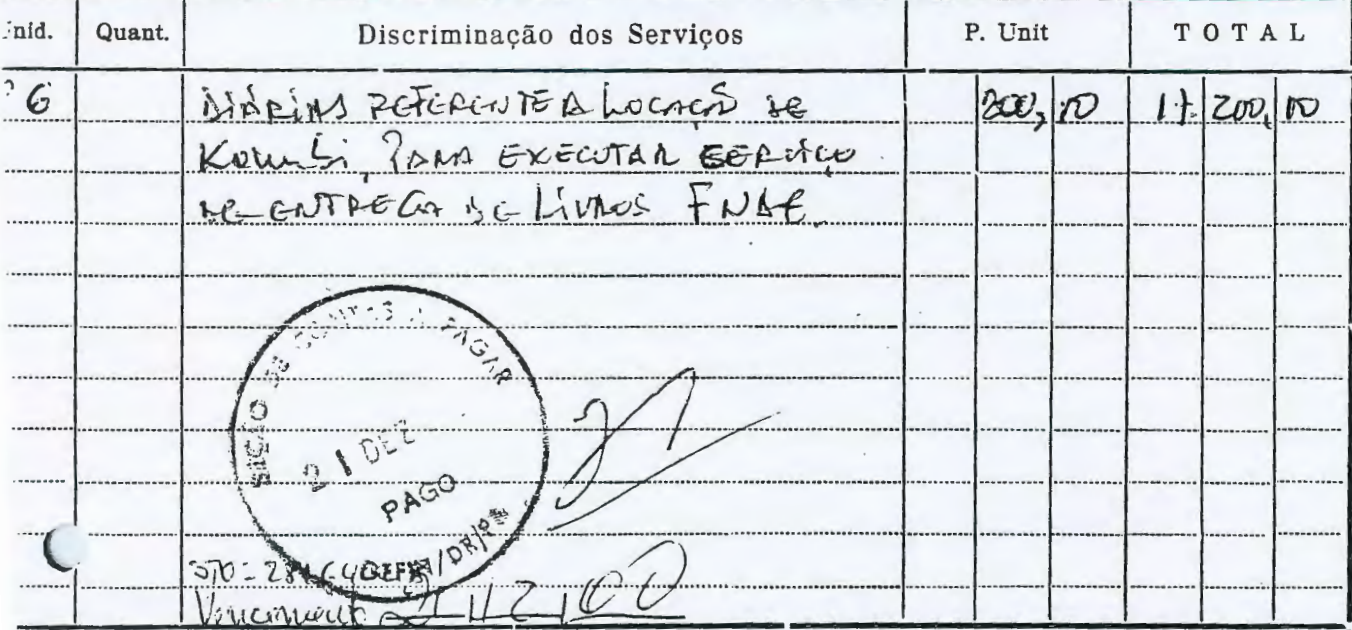 nid. Quant. Discriminação dos Serviços P. Unit TOTAL
6 DIÁRIAS REFERENTE A LOCAÇÃO DE 200,00 1 200,00
Kombi, PARA EXECUTAR SERVIÇO
DE ENTREGA DE LIVROS FNDE
SEÇÃO DE CONTAS A PAGAR
21 DEZ
PAGO
/DR/PR
Vencimento 21/12/00